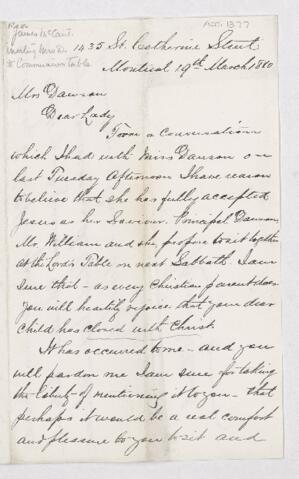 Acc. 1377
James McCaul
inviting Mrs D.
to Communion table
1435 St. Catherine Street
Montreal 19th March 1880
Mrs Dawson
Dear Lady
From a Conversation
which I had with Miss Dawson on
last Tuesday Afternoon I have reason
to believe that she has fully accepted
Jesus as her Saviour. Principal Dawson
Mr. William and she propose to sit together
at the Lord's Table on next Sabbath. I am
sure that - as every Christian parent does
you will heartily rejoice that your dear
child has closed with Christ.
It has occurred to me - and you
will pardon me I am sure for taking
the liberty of mentioning it to you - that
perhaps it would be a real comfort
and pleasure to you to sit and